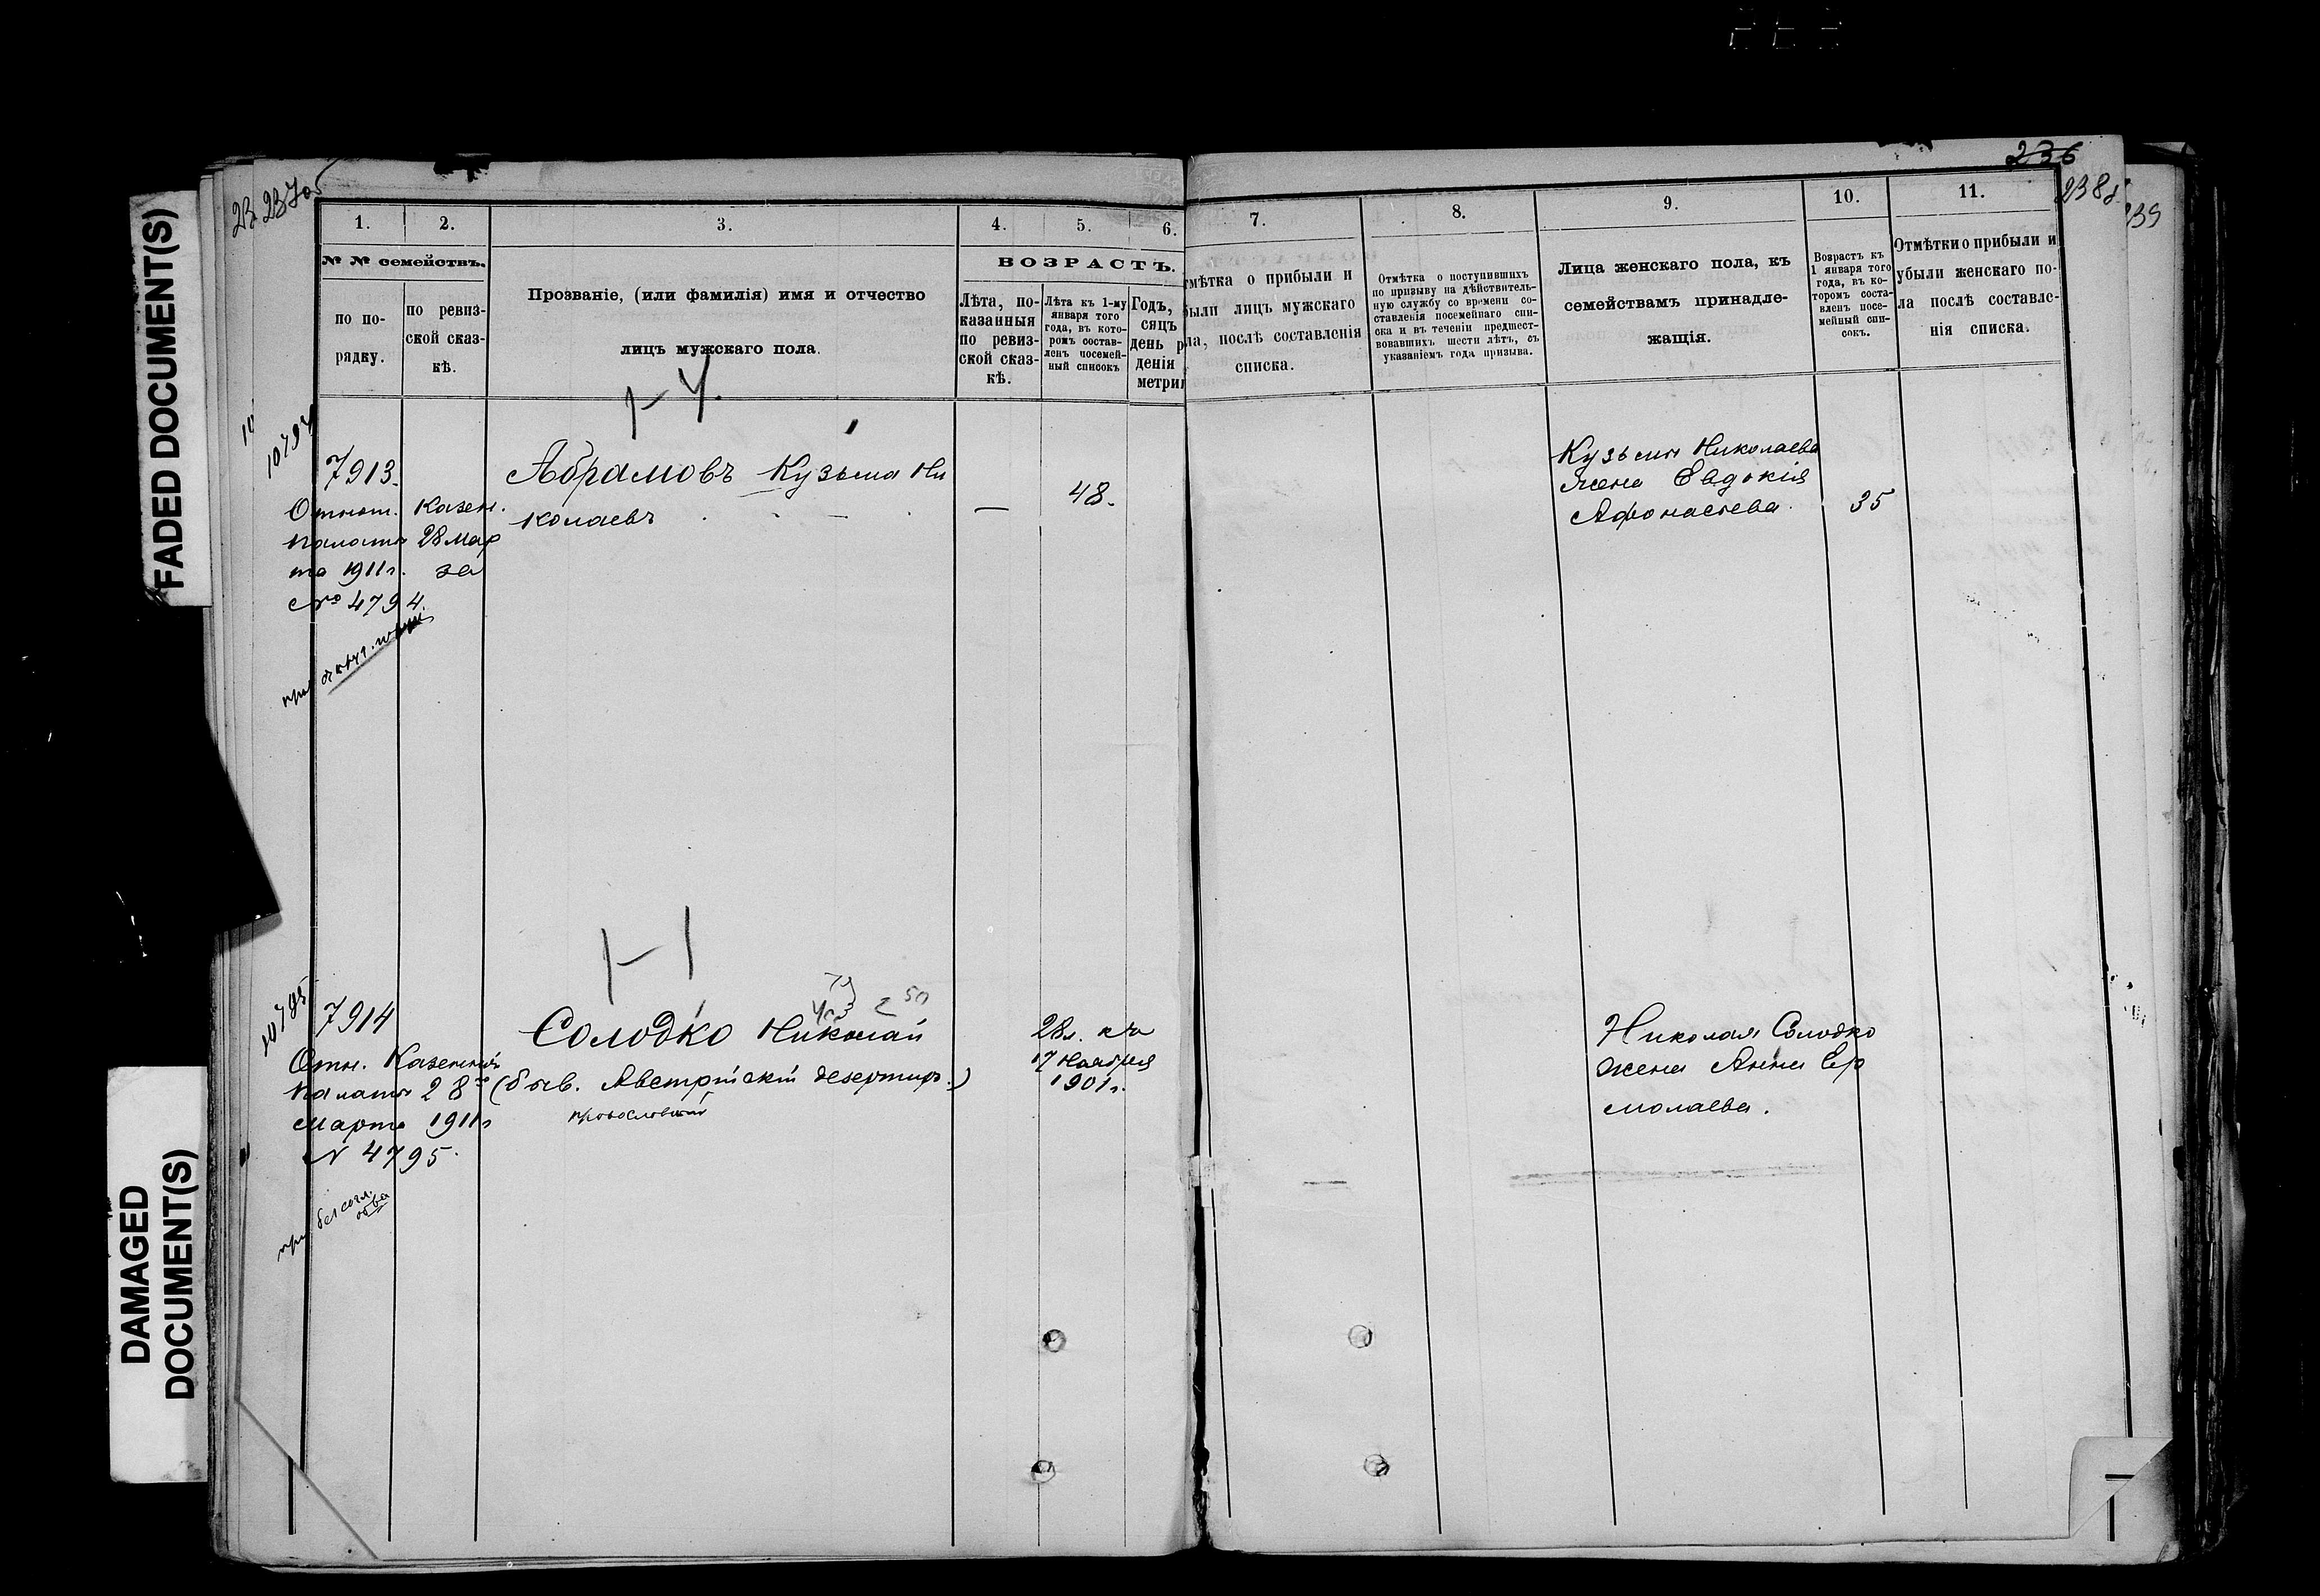 FADED DOCUMENT(S)
DAMAGED
DOCUMENT(S)
236
1.
2.
3.
4.
5.
6.
№ № семействъ.
по по-
рядку.
по ревиз-
ской сказ-
кѣ.
Прозваніе, (или фамилія) имя и отчество
лицъ мужскаго пола.
ВОЗРАСТЪ.
Лѣта, по-
казанныя
по ревиз-
ской сказ-
кѣ.
Лѣта къ 1-му
января того
года, въ кото-
ромъ состав-
ленъ посемей-
ный списокъ
Годъ,
сяцъ
день р
денія
метри
7.
8.
9.
10.
11.
мѣтка о прибыли и
были лицъ мужскаго
ла, послѣ составленія
списка.
Отмѣтка о поступившихъ
по призыву на дѣйствитель-
ную службу со времени со-
ставленія посемейнаго спи-
ска и въ теченіи предшест-
вовавшихъ шести лѣтъ, съ
указаніемъ года призыва.
Лица женскаго пола, къ
семействамъ принадле-
жащія.
Возрастъ къ
1 января того
года, въ ко-
торомъ соста-
вленъ посе-
мейный спи-
сокъ.
Отмѣтки о прибыли и
убыли женскаго по-
ла послѣ составле-
нія списка.
1-4.
10794
7913.
Отнош. Казен.
палаты 28 мар
та 1911 г. за
№ 4794.
Абрамовъ Кузьма Ни
колаевъ
—
48.
Кузьмы Николаева
жена Евдокія
Афонасьева.
35
1-1
10795
7914
Отн. Казенной
палаты 28го
марта 1911 г
N 4795.
при без согл.
об-ва
Солодко Николай
(быв. Австрійскій дезертиръ.)
православный
28 л. къ
17 Ноября
1901 г.
Николая Солодко
жена Анна Ер
молаева.